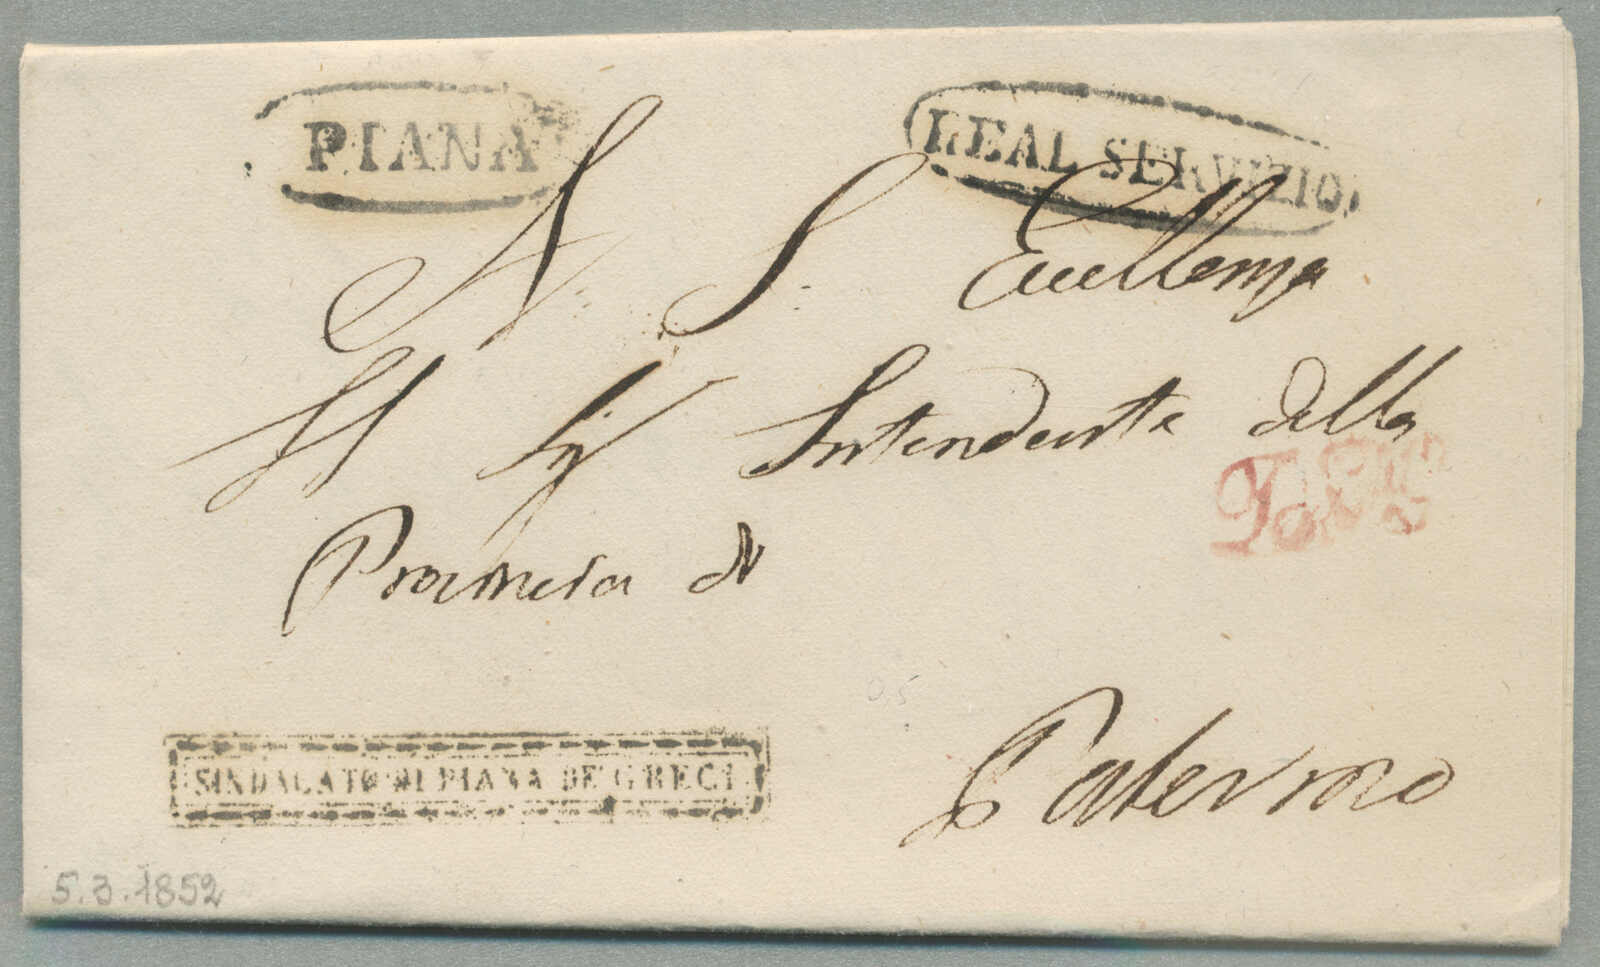 PIANA
REAL SERVIZIO
A S. Eccellenza
Il Sig Intendente della
Provincia di
0,5
Palermo
SINDACATO DI PIANA DE GRECI
5.3.1852